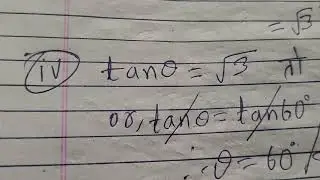 = √3
(iv) tanθ = √3 नो
or, tanθ = tan60°
∴ θ = 60°